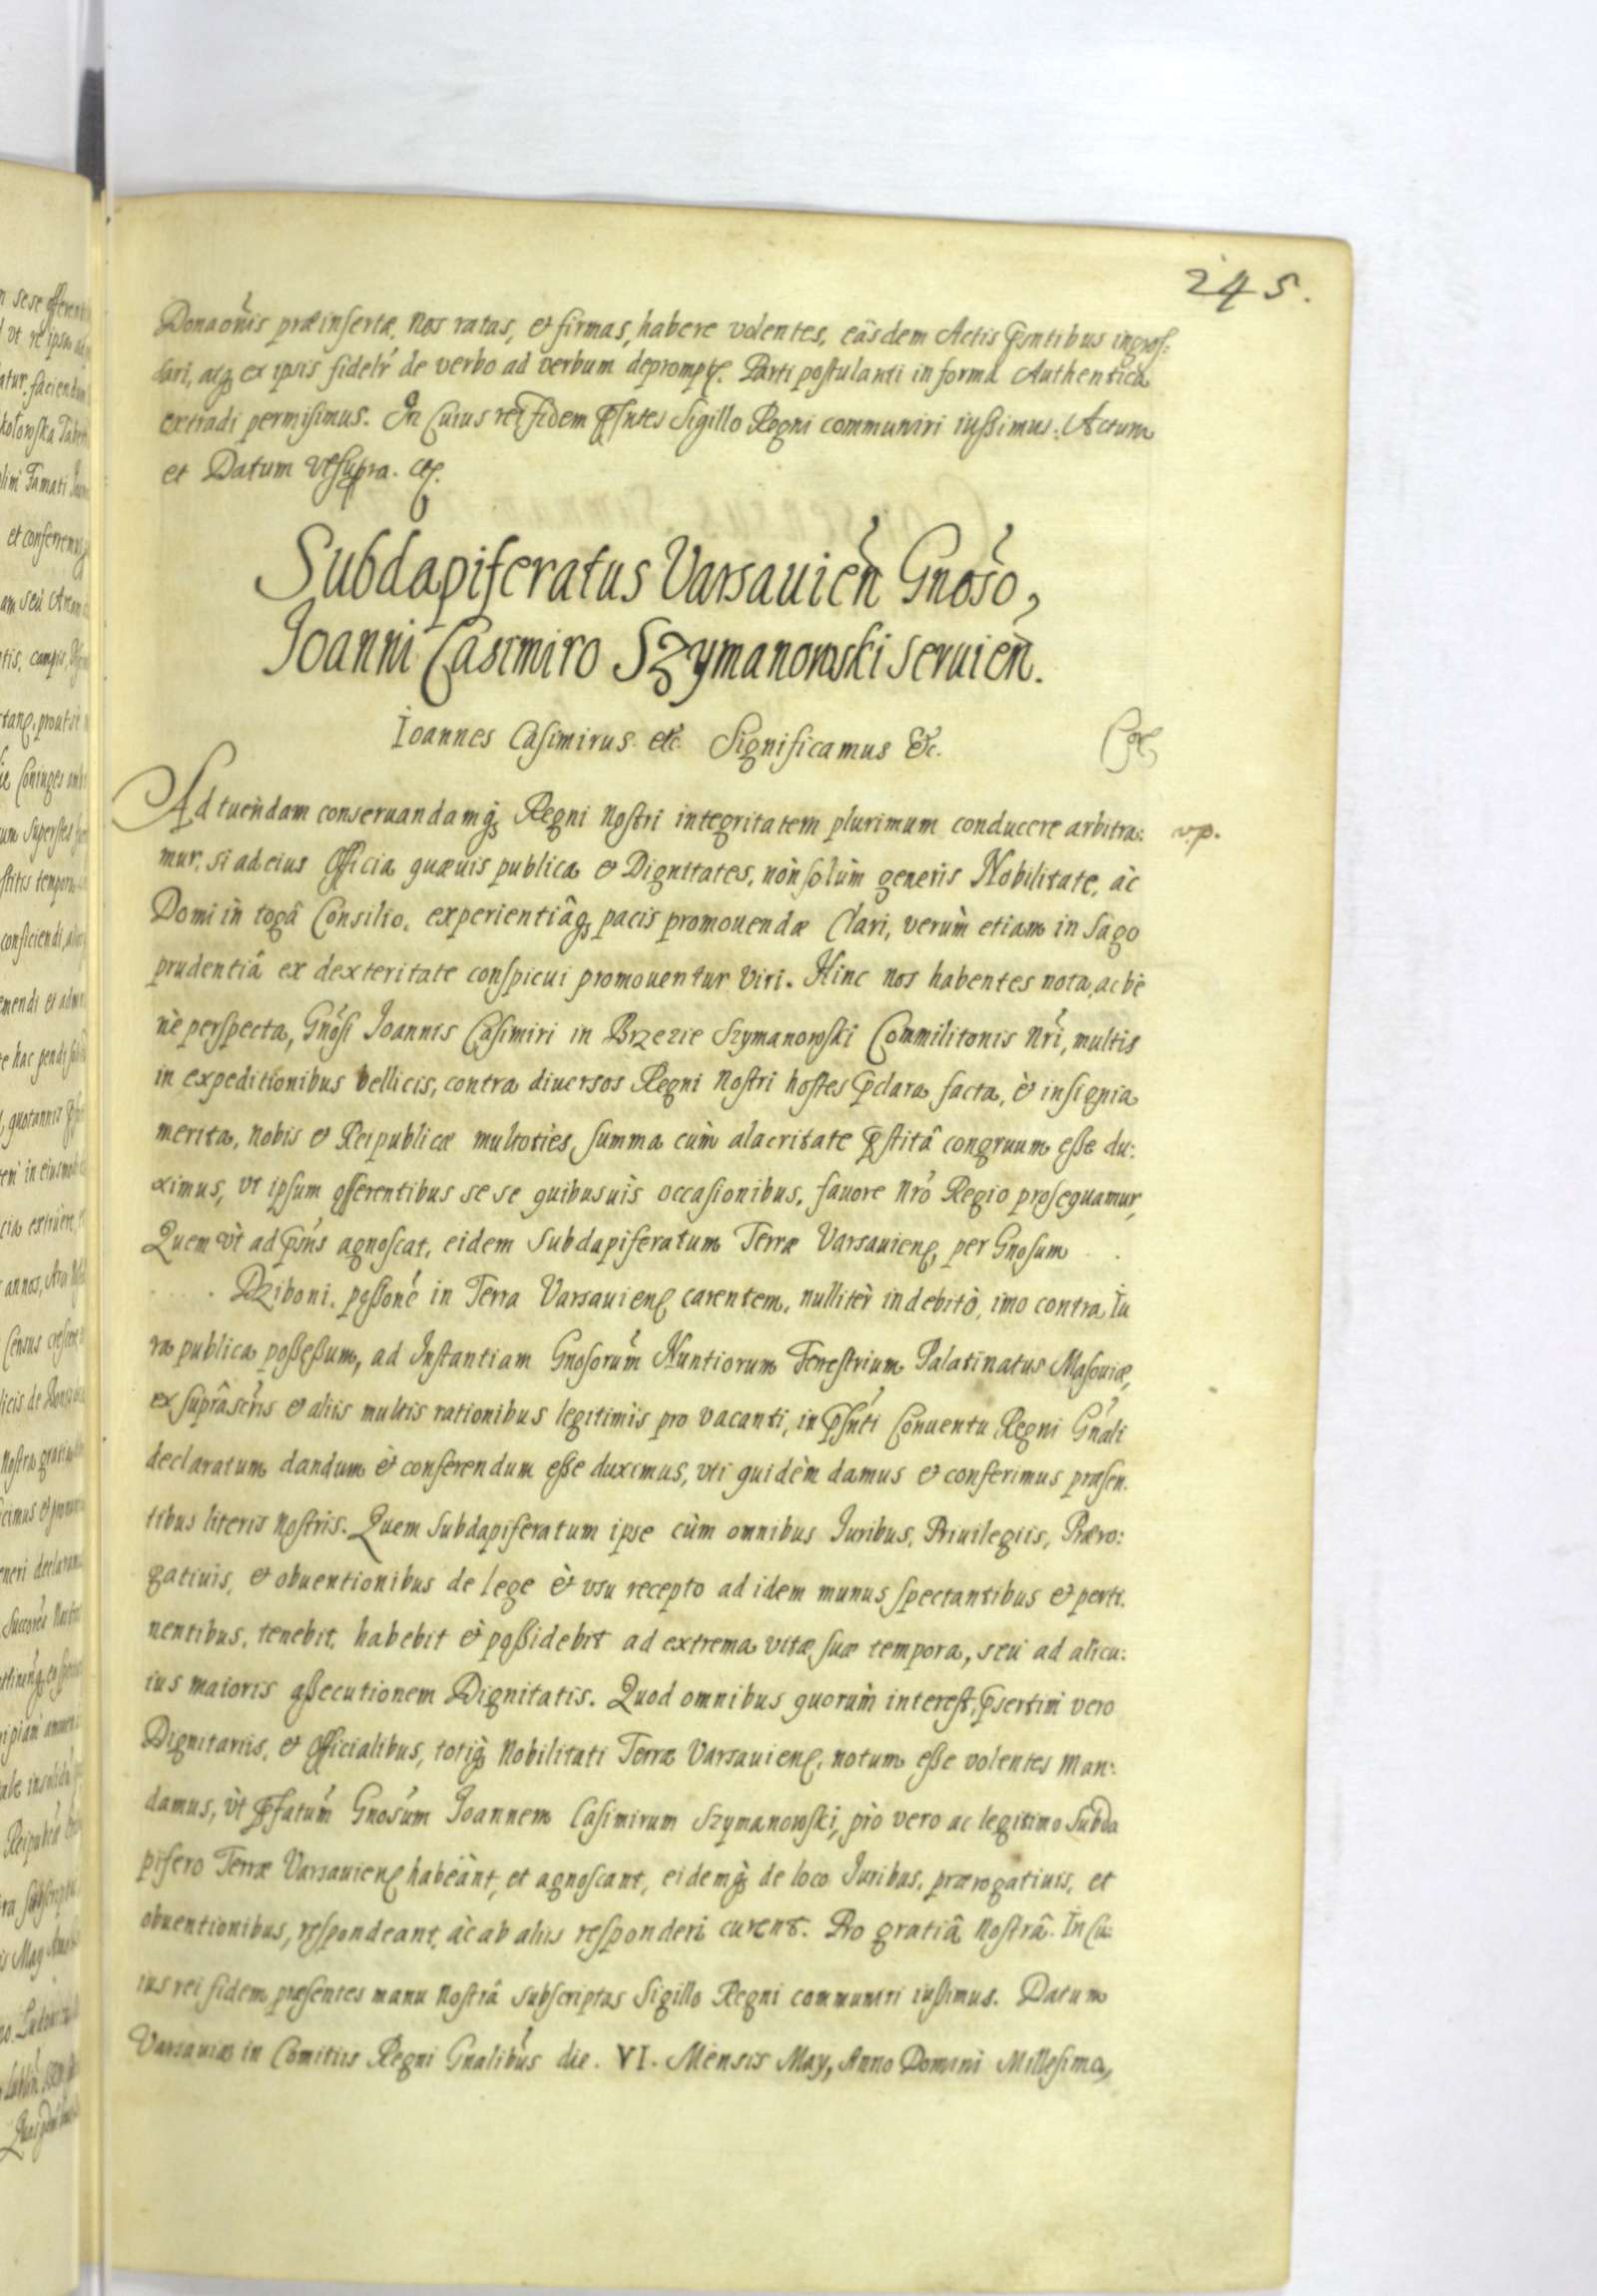 245.
Donaonis præinsertæ. Nos ratas, et firmas, habere volentes, eäsdem Actis pntibus ingros:
sari, atq, ex ipsis fidelr de verbo ad verbum deprompt. Parti postulanti in forma Authentica
extradi permisimus. In Cuius rei fidem psntes Sigillo Regni communiri iussimus. Actum
et Datum vt supra.
Subdapiferatus Varsauien Gnoso,
Joanni Casimiro Szymanowski seruien.
Ioannes Casimirus etc. Significamus &c.
Ad tuendam conseruandamq, Regni Nostri integritatem plurimum conducere arbitra:
v.p.
mur, si ad eius Officia quæuis publica et Dignitates, nòn solùm generis Nobilitate, àc
Domi in togâ Consilio, experientiâq, pacis promouendæ Clari, verùm etiam in Sago
prudentiâ ex dexteritate conspicui promouentur Viri. Hinc nos habentes nota, ac bè
nè perspecta, Gnosi Joannis Casimiri in Brzezie Szymanowski Commilitonis Nri, multis
in expeditionibus bellicis, contra diuersos Regni Nostri hostes pclara facta, èt insignia
merita, nobis et Reipublicæ multoties, summa cùm alacritate pstitâ congruum esse du:
ximus, vt ipsum offerentibus se se quibusuis occasionibus, fauore Nro Regio prosequamur,
Quem vt ad pns agnoscat, eidem Subdapiferatum Terræ Varsauien, per Gnosum
. . . . Dziboni, possone in Terra Varsauien carentem, nullitèr indebitò, imo contra Iu
ra publica possessum, ad Instantiam Gnosorum Nuntiorum Terrestrium Palatinatus Masouiæ,
ex suprascris et aliis multis rationibus legitimis pro vacanti, in psnti Conuentu Regni Gnali
declaratum dandum èt conferendum esse duximus, vti quidèm damus et conferimus præsen.
tibus literis Nostris. Quem Subdapiferatum ipse cùm omnibus Juribus, Priuilegiis, Præro:
gatiuis, et obuentionibus de lege èt vsu recepto ad idem munus spectantibus et perti.
nentibus, tenebit, habebit èt possidebit ad extrema vitæ suæ tempora, seu ad alicu:
ius maioris assecutionem Dignitatis. Quod omnibus quorum interest, psertim vero
Dignitariis, et Officialibus, totiq, Nobilitati Terræ Varsauien, notum esse volentes Man:
damus, vt pfatum Gnosum Joannem Casimirum Szymanowski, pro vero ac legitimo Subda
pifero Terræ Varsauien habeànt, et agnoscant, eidemq, de loco Juribus, prærogatiuis, et
obuentionibus, respondeant, àc ab aliis responderi curent. Pro gratiâ Nostrâ. In Cu
ius rei fidem præsentes manu Nostrâ subscriptas Sigillo Regni communiri iussimus. Datum
Varsauiæ in Comitiis Regni Gnalibus die. VI. Mensis May, Anno Domini Millesimo,